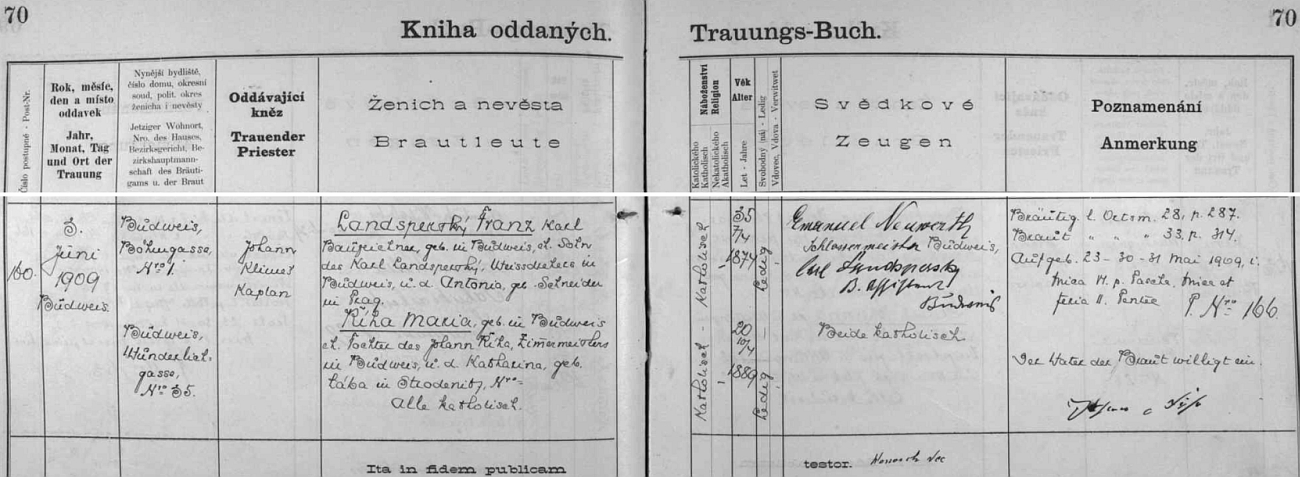 70
Kniha oddaných.
Číslo postupné - Post-Nr.
Rok, měsíc,
den a místo
oddavek
Jahr,
Monat, Tag
und Ort der
Trauung
Nynější bydliště,
číslo domu, okresní
soud, polit. okres
ženicha i nevěsty
Jetziger Wohnort,
Nro. des Hauses,
Bezirksgericht, Be-
zirkshauptmann-
schaft des Bräuti-
gams u. der Braut
Oddávající
kněz
Trauender
Priester
Ženich a nevěsta
Brautleute
160.
3.
Juni
1909
Budweis.
Budweis,
Nro 1.
Budweis,
gasse,
Nro 35.
Johann
Klimeš
Kaplan
Landsperský Franz Karl
geb. in Budweis, el. Sohn
des Karl Landsperský, in
Budweis, u. d. Antonia, geb. Schneider
in Prag.
Říha Maria, geb. in Budweis
el. Tochter des Johann Říha, Zimermeisters
in Budweis, u. d. Katharina, geb.
in Strodenitz, Nro -
Alle katholisch.
Ita in fidem publicam
Trauungs-Buch.
70
Náboženství
Religion
Katolického
Katholisch
Nekatolického
Akatholisch
Věk
Alter
Let - Jahre
Svobodný (ná) - Ledig
Vdovec, Vdova - Verwitwet
Svědkové
Zeugen
Poznamenání
Anmerkung
Katholisch -
35
7/4
1874
Ledig
Katholisch -
20
10/4
1889
Ledig
Emanuel Neuwerth
Schlossermeister Budweis,
Carl Landspersky
B. Assistent
Budweis
Beide katholisch.
Bräutig. l. Octsm. 28, p. 287.
Braut " " " 33, p. 314.
Aufgeb. 23 - 30 - 31 Mai 1909, i.
feria II. Pentec
P. Nro 166.
Der Vater der Braut willigt ein.
testor.